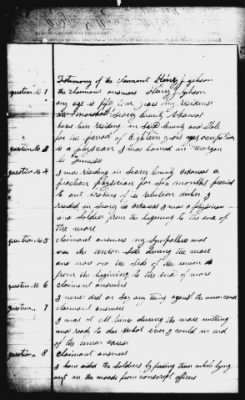 Testimony of the claimant Henry J. Gibson
question No 1 the claimant answers Henry J. Gibson
my age is fifty four years my residence
in Searcy County Arkansas
have been residing in said County and State
for the period of Eighteen years my occupation
question No 2 is a physician I was born in Morgan
Co Tennessee
question No 4 I was residing in Searcy County Arkansas a
practicing physician for six months previous
to out braking of the rebelion when I
resided in Searcy co Arkansas I was a physician
and soldier from the beginning to the end of
the ware
question No 5 claimant answers my sympathies was
was the union side during the ware
and was on the side of the union
from its begining to the end of ware
question No 6 claimant answers
I never did or say any thing against the union cause
question, 7 claimant answers
I was at all times during the ware willing
and ready to do what ever I could in aid
of the union cause
question " 8 claimant answers
I have aided the soldiers by feeding them while lying
out in the woods from conscript officers